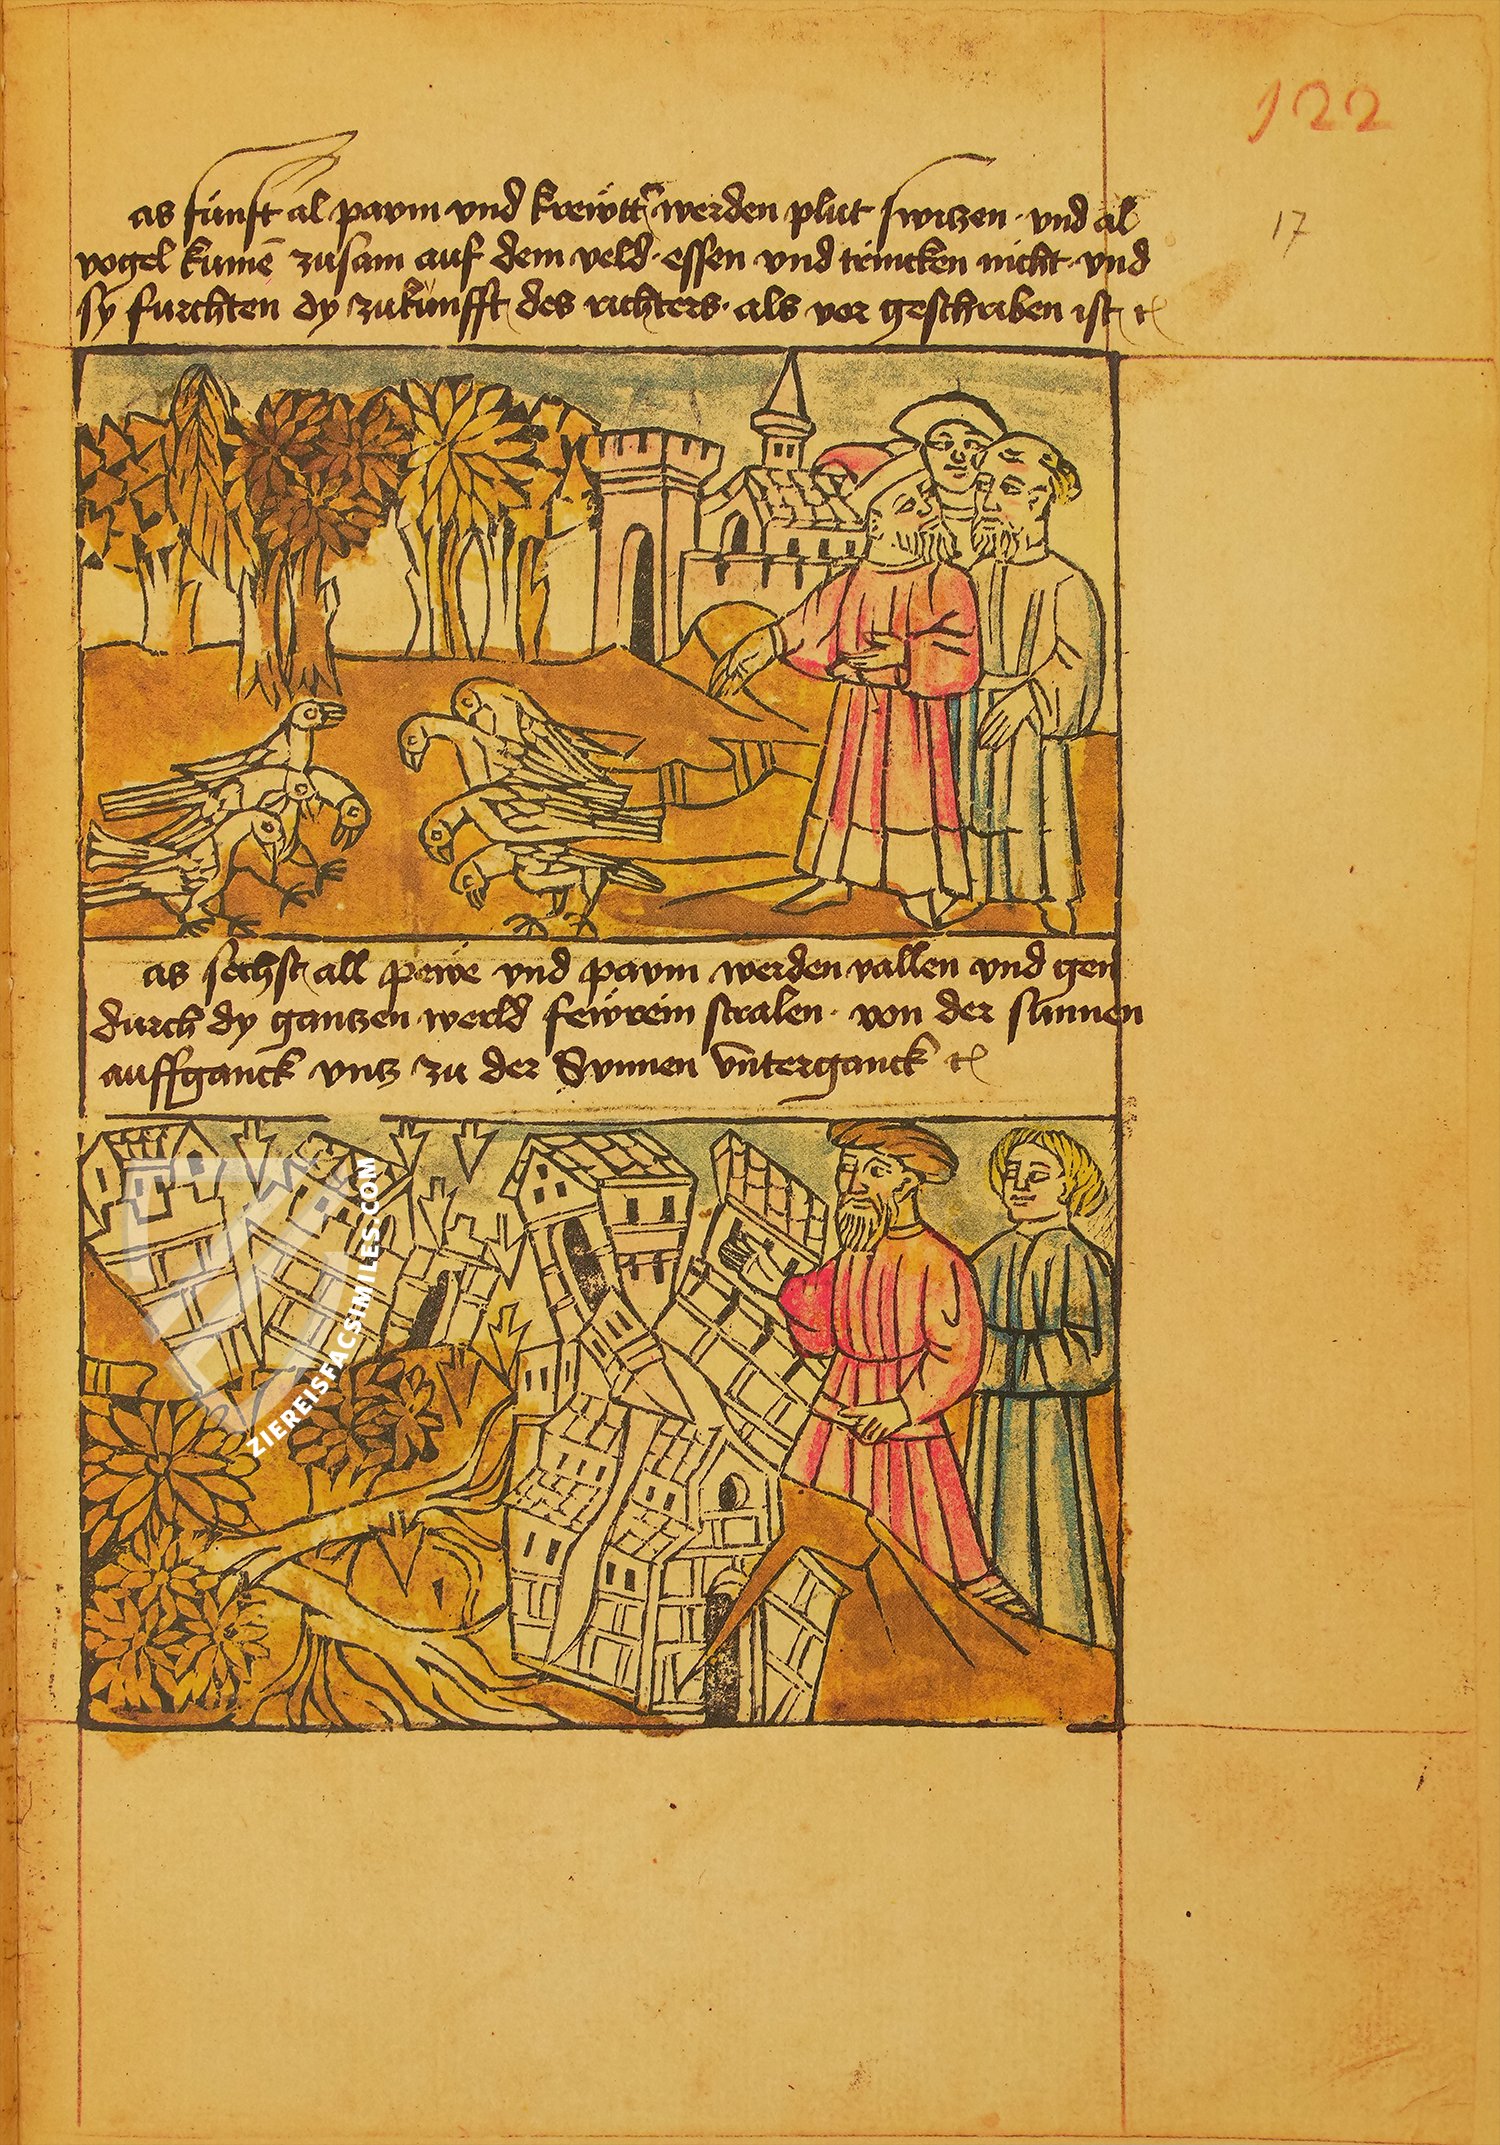 122
as funft al pavm vnd krewtt werden plut switzen · vnd al
17
vogel kumē zusam auf dem veld · essen vnd trincken nicht · vnd
sy furchten dy zukunfft des richters · als vor geschriben ist
as sechst all pewe vnd pavm werden vallen vnd gen
durch dy gantzen werld fewrein stralen · von der sunnen
auffganck vntz zu der Sunnen vnterganck
ZIEREISFACSIMILES.COM